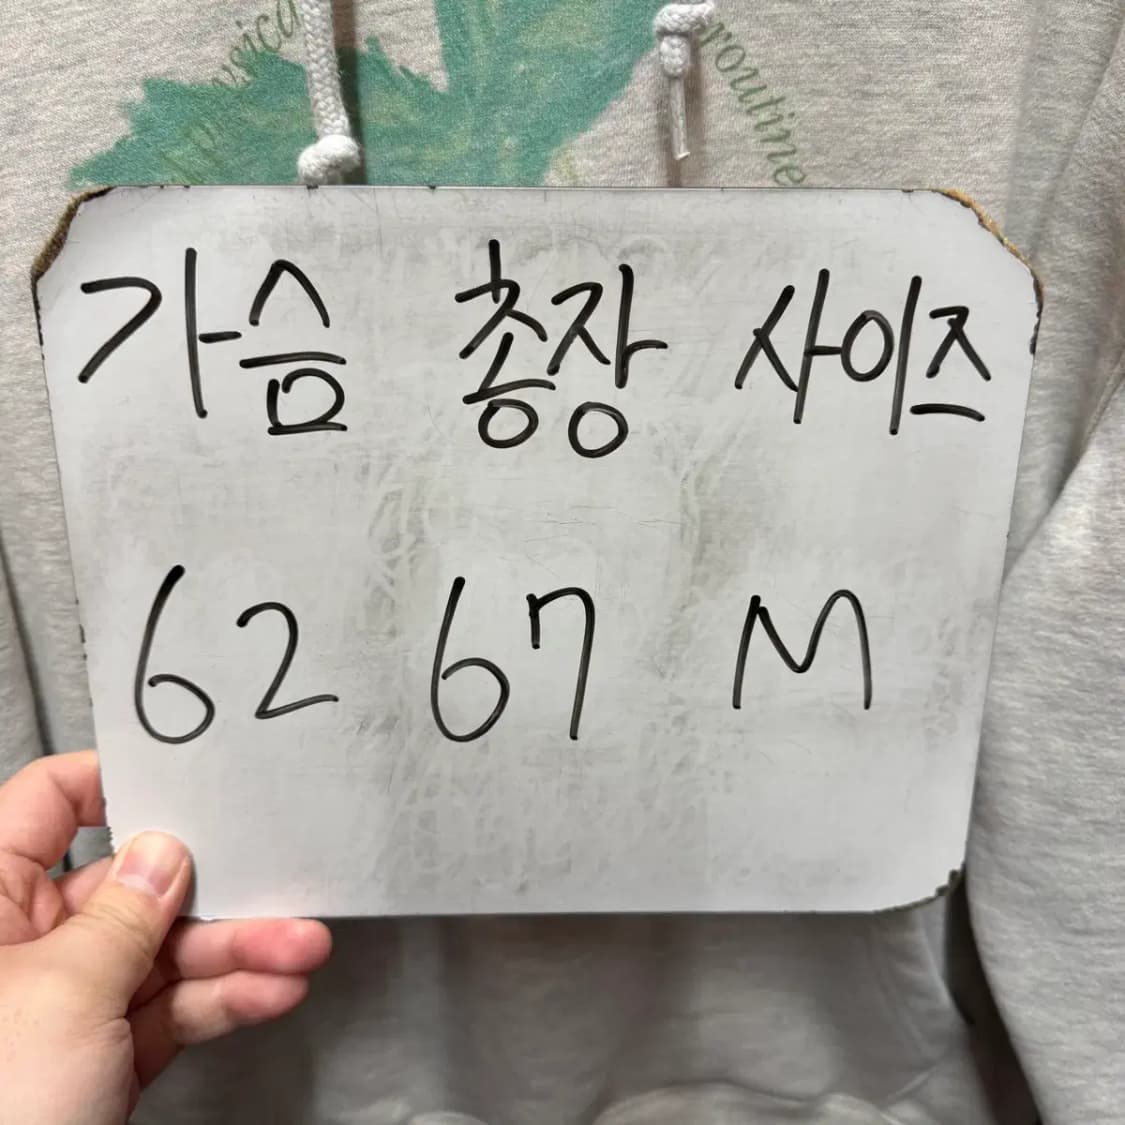 routine
가슴 총장 사이즈
62 67 M